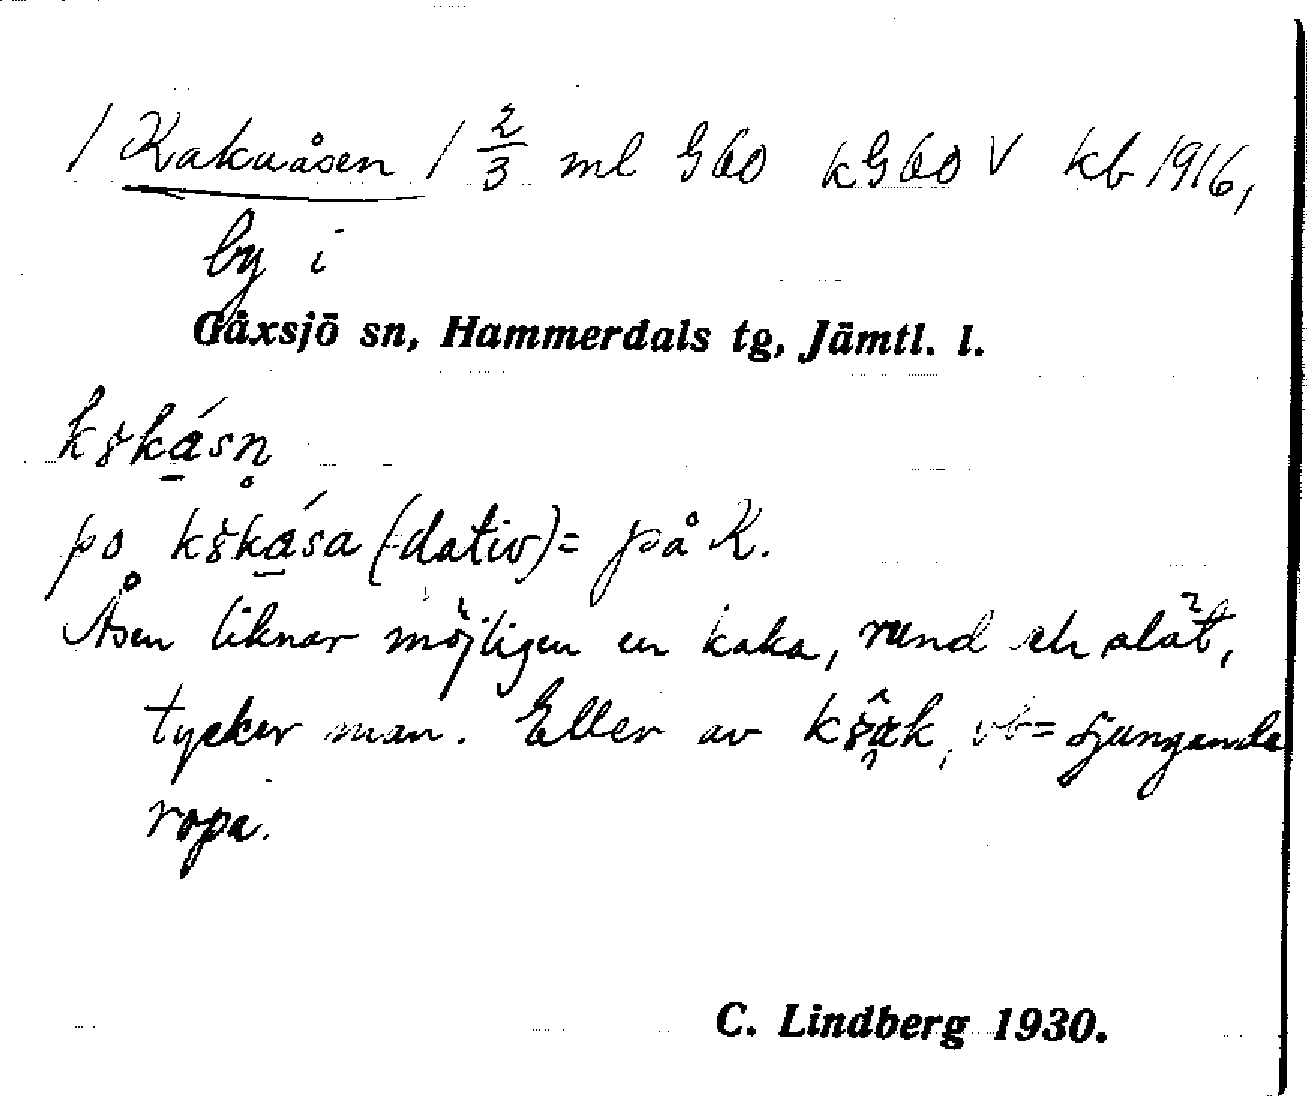 / Kakuåsen / 2/3 ml G60 kG60 V kb 1916,
by i
Gåxsjö sn, Hammerdals tg, Jämtl. l.
po (dativ) = på K.
Åsen liknar möjligen en kaka, rund och slät,
tycker man. Eller av vb = sjungande
ropa.
C. Lindberg 1930.